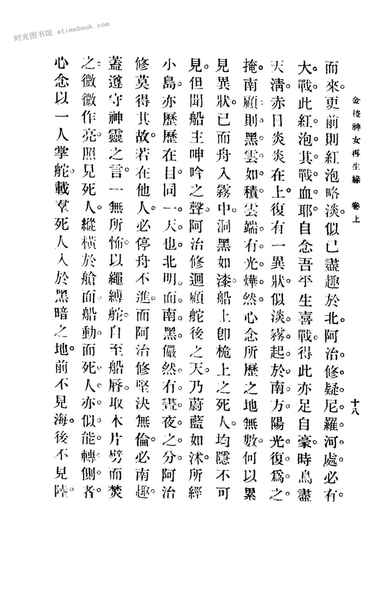 时光图书馆 etimebook.com
金梭神女再生緣 卷上
十八
而來。更前則紅泡略淡。似已盡趣於北。阿治修疑尼羅河處必有
大戰。此紅泡其戰血耶。自念吾平生喜戰。得此亦足自豪。時鳥盡
天淸。赤日炎炎在上。復有一異狀。似淡霧起於南方。陽光復爲之
掩。南顧則黑雲如積。雲端有光爗然。心念所歷之地無數。何以累
見異狀。已而舟入霧中。洞黑如漆。船上卽桅上之死人。均隱不可
見。但聞船主呻吟之聲。阿治修迴顧舵後之天。乃蔚藍如沐。所經
小島亦歷歷在目。同一天也。北明而南黑。儼然有晝夜之分。阿治
修莫得其故。若在他人必停舟不進。而阿治修堅決無倫。必南趣。
蓋遵守神靈之言。一無所怖。以繩縛舵。自至船脣。取木片劈而焚
之。微微作亮。照見死人。縱橫於艙面。船動而死人亦似能轉側者。
心念以一人掌舵。載羣死人入於黑暗之地。前不見海。後不見陸。